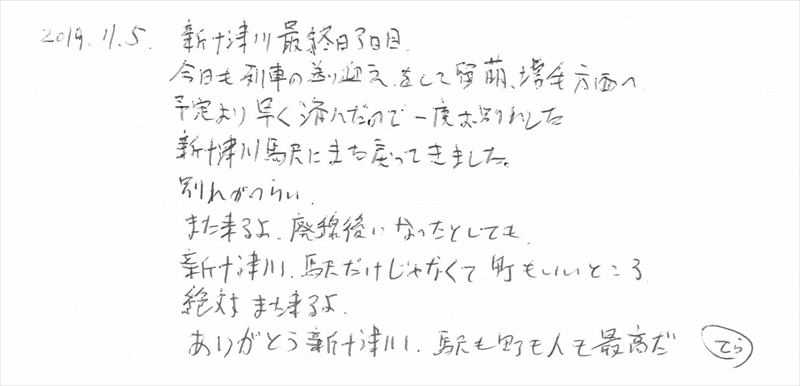 2019.11.5. 新十津川最終日3日目.
今日も列車の送り迎えをして留萌、増毛方面へ
予定より早く済んだので一度お別れした
新十津川駅にまた戻ってきました。
別れがつらい.
また来るよ. 廃線後になったとしても.
新十津川. 駅だけじゃなくて町もいいところ
絶対また来るよ.
ありがとう新十津川. 駅も町も人も最高だ てら